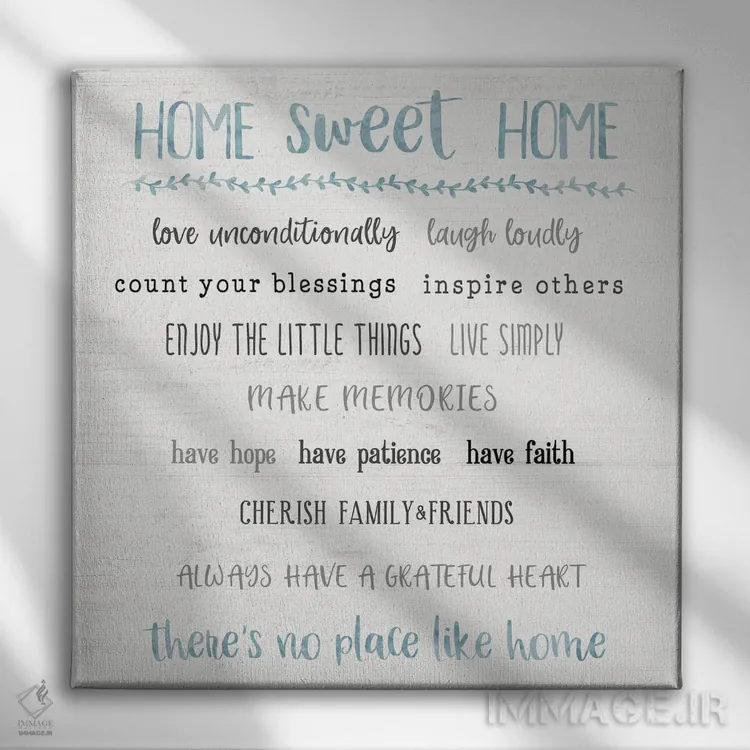 HOME sweet HOME
love unconditionally laugh loudly
count your blessings inspire others
ENJOY THE LITTLE THINGS LIVE SIMPLY
MAKE MEMORIES
have hope have patience have faith
CHERISH FAMILY & FRIENDS
ALWAYS HAVE A GRATEFUL HEART
there's no place like home
IMMAGE
IMMAGE.IR
IMMAGE.IR